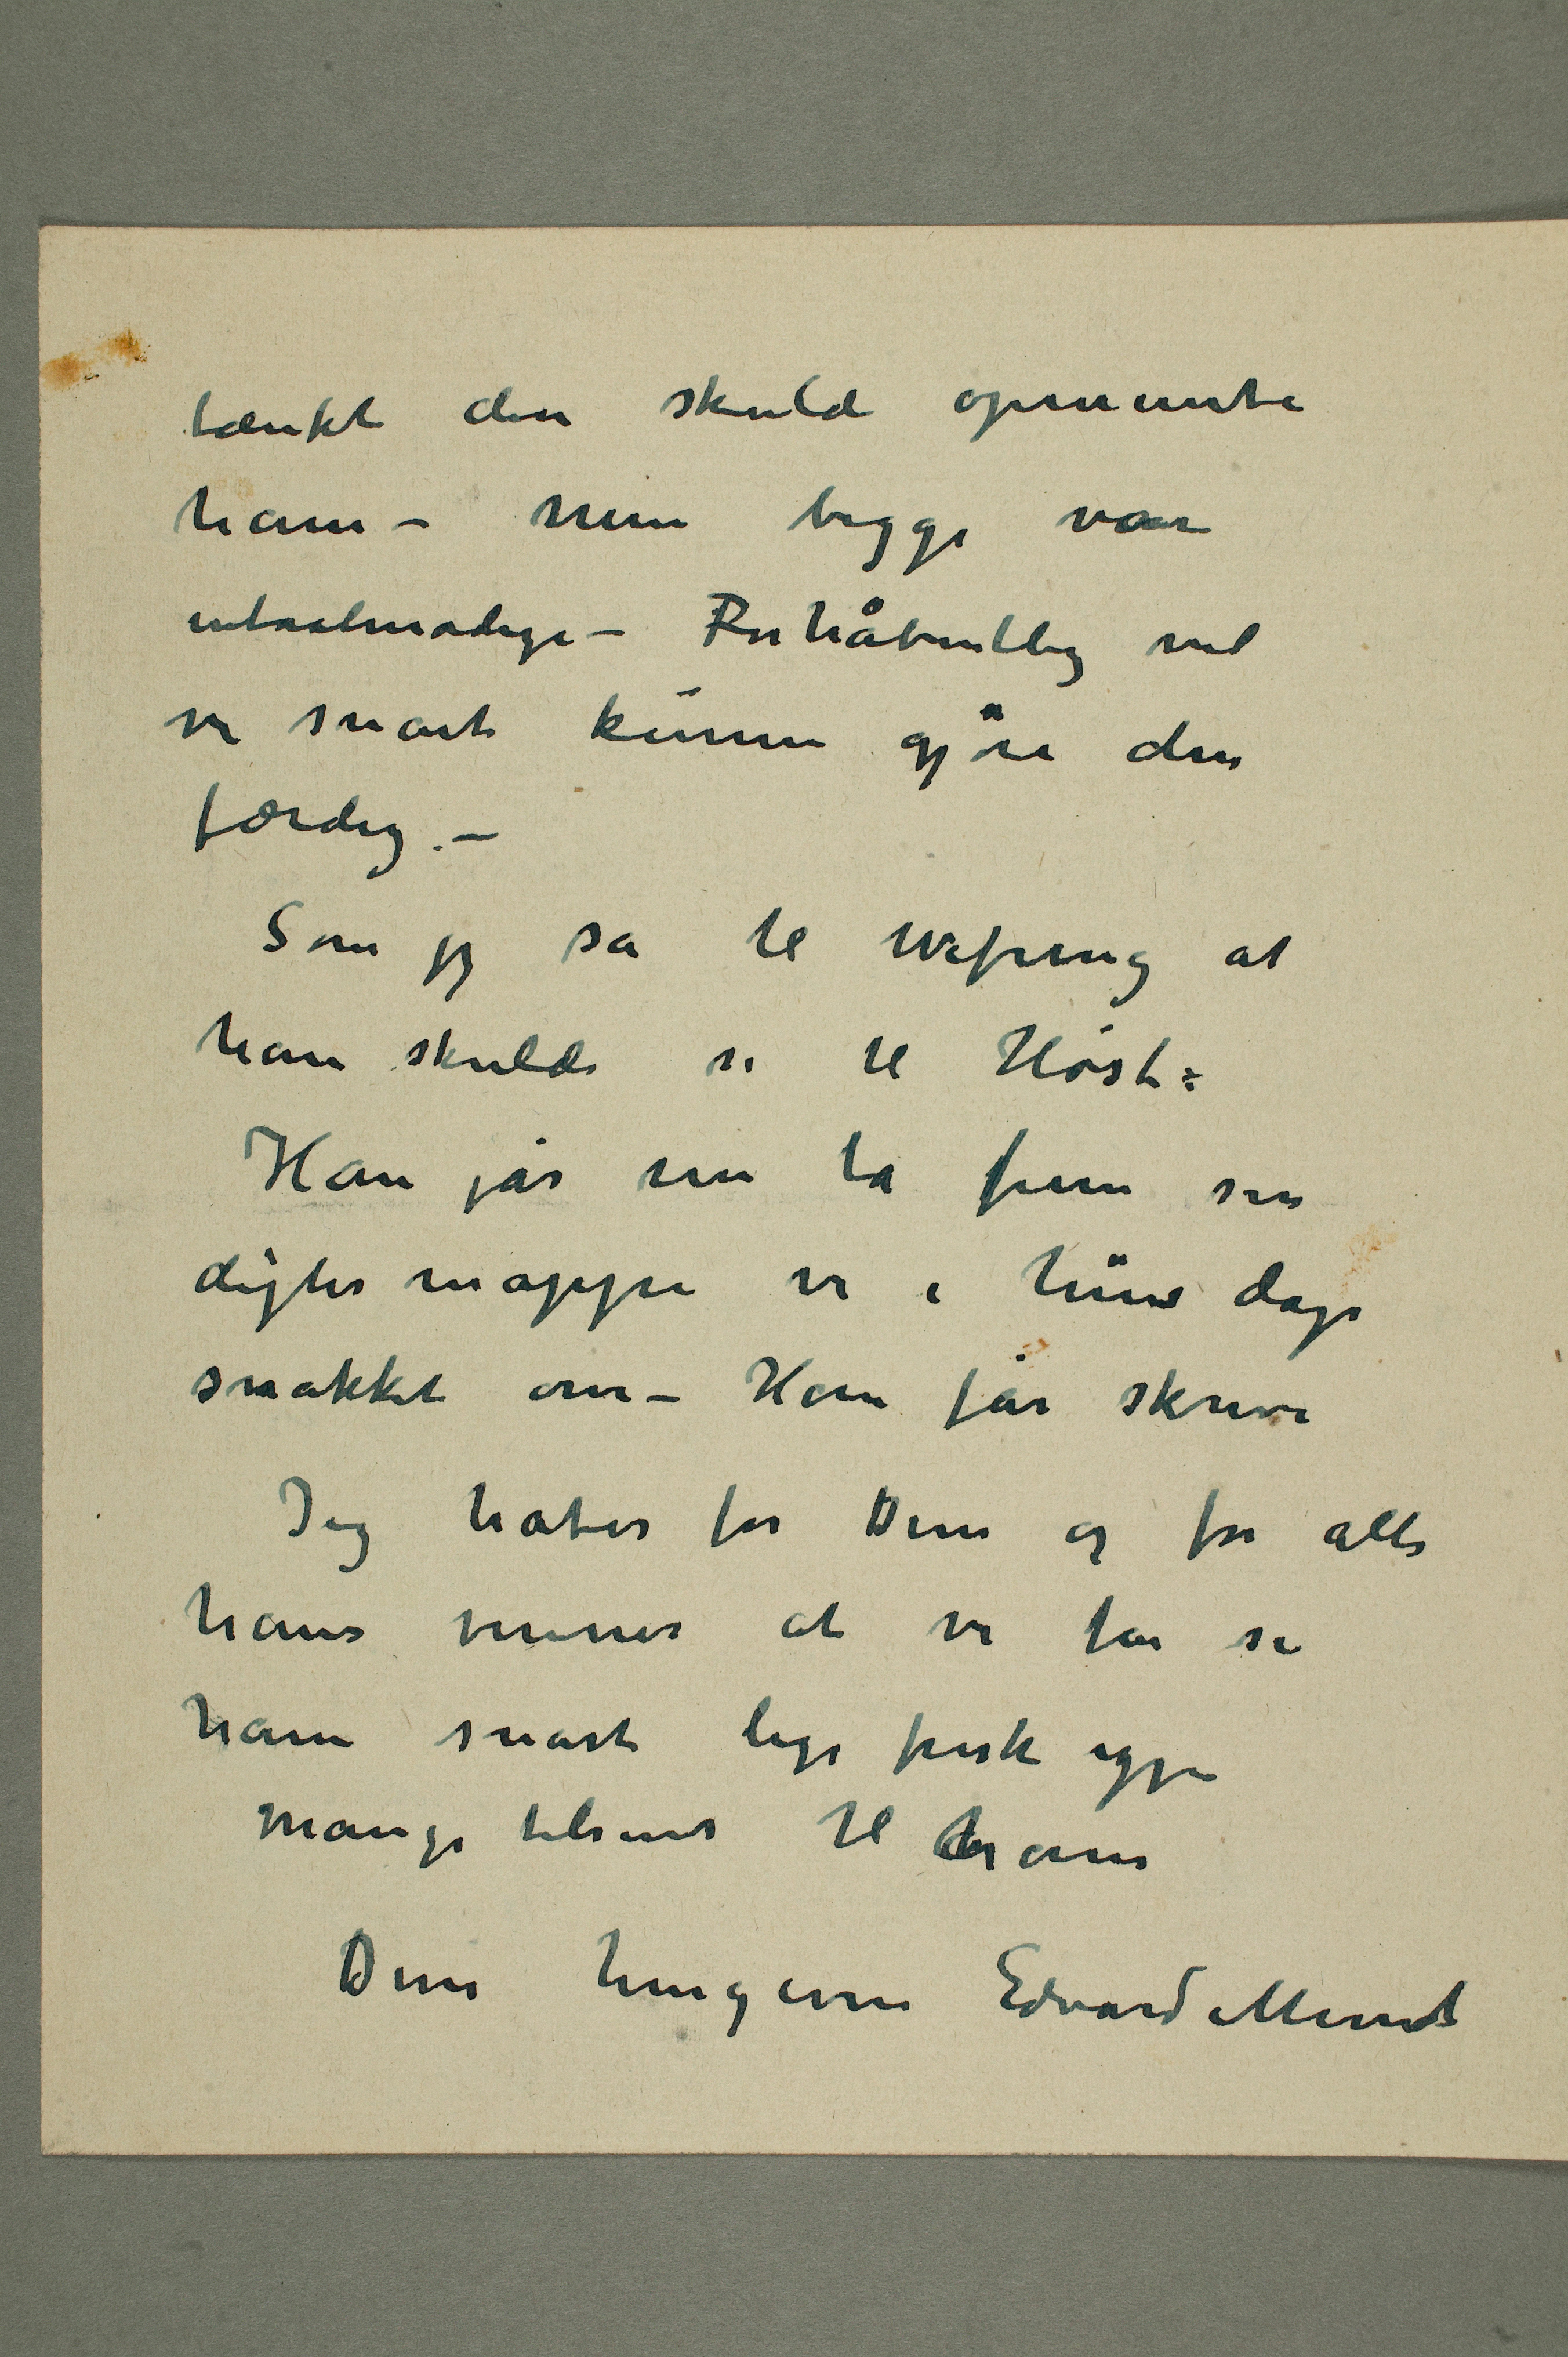 tænkt den skulde opmuntre
ham – men begge var
utaalmodige – Forhåbentlig vil
vi snart kunne gjöre den
færdig. –
Som jeg sa til Wefring at
han skulde si til Höst:
Han får nu ta frem sin
digter mappe vi i hine dage
snakket om – Han får skrive
Jeg håber for Dem og for alle
hans venner at vi får se
ham snart lige frisk igjen
Mange hilsener til ham
Deres hengivne Edvard Munch